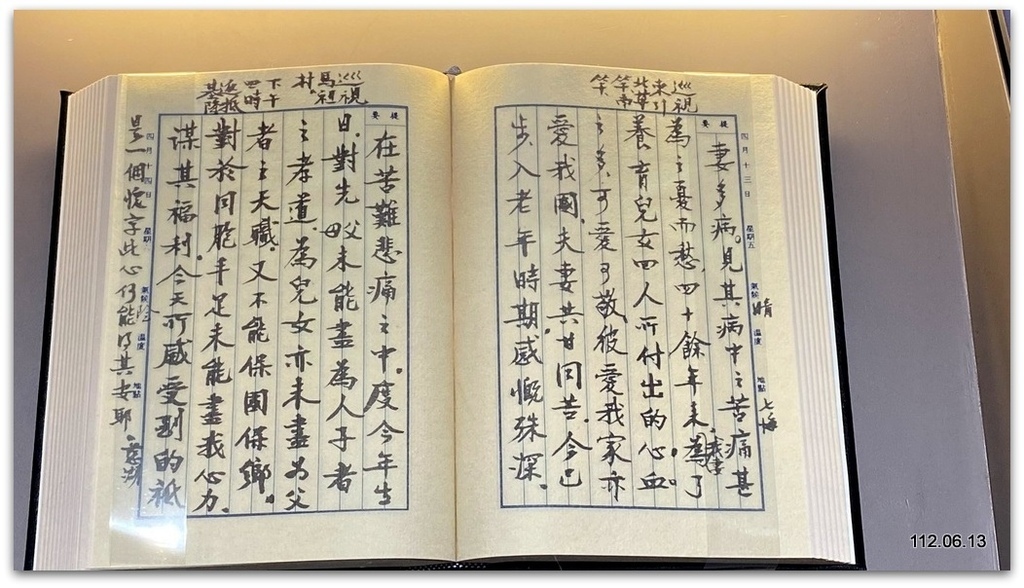 巡視
東引
北竿
南竿
提要
四月十三日 星期五 氣候 晴 溫度 地點 七海
妻多病。見其病中之苦痛甚
為之憂而愁,四十餘年來。我妻為了
養育兒女四人所付出的心血。
之多,可愛可敬彼愛我家亦
愛我國,夫妻共甘同苦,今已
步入老年時期。感慨殊深。
巡視
馬祖
村。
下午
四時
返抵
基隆
提要
在苦難悲痛之中。度今年生
日,對先父母未能盡為人子者
之孝道,為兒女亦未盡為父
者之天職。又不能保國保鄉。
對於同胞手足未能盡我心力,
謀其福利。今天所感受到的祇
四月十四日 星期 氣候 溫度 地點
是一個愧字此心何能得其安耶。慈湖
112.06.13